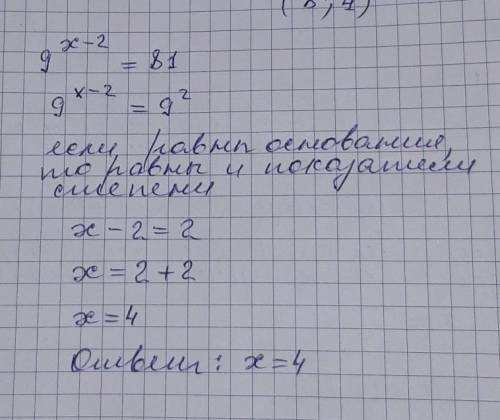 9^{x-2} = 81
9^{x-2} = 9^2
если равны основания,
то равны и показатели
степени
x - 2 = 2
x = 2 + 2
x = 4
Ответ: x = 4